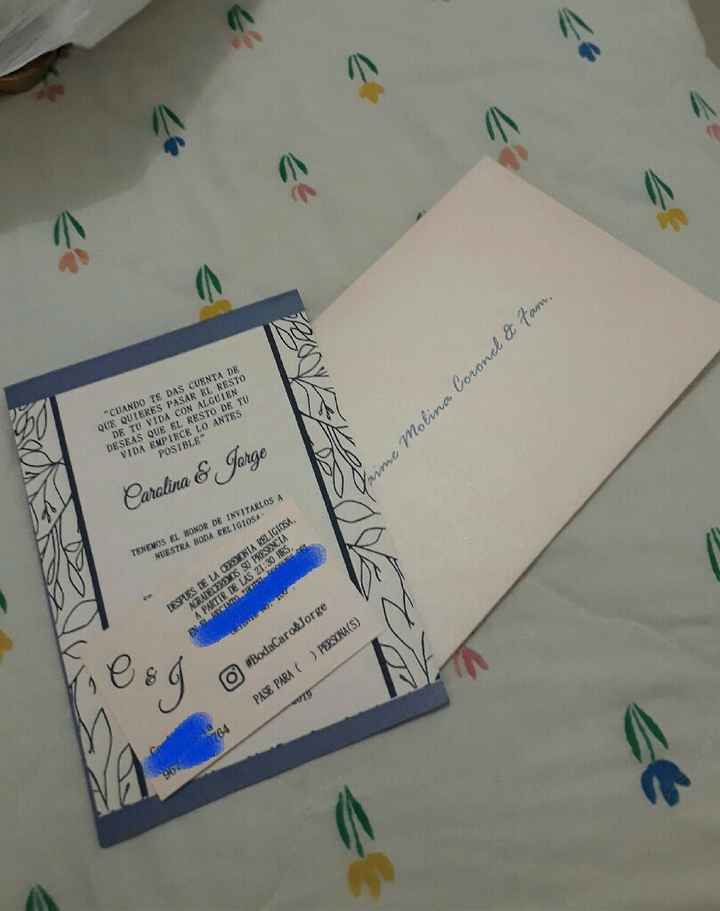 "CUANDO TE DAS CUENTA DE
QUE QUIERES PASAR EL RESTO
DE TU VIDA CON ALGUIEN
DESEAS QUE EL RESTO DE TU
VIDA EMPIECE LO ANTES
POSIBLE"
Carolina & Jorge
TENEMOS EL HONOR DE INVITARLOS A
NUESTRA BODA RELIGIOSA
DESPUES DE LA CEREMONIA RELIGIOSA,
AGRADECEREMOS SU PRESENCIA
A PARTIR DE LAS 21:30 HRS.
C & J
#BodaCaro&Jorge
PASE PARA ( ) PERSONA(S)
Jaime Molina Coronel & Fam.